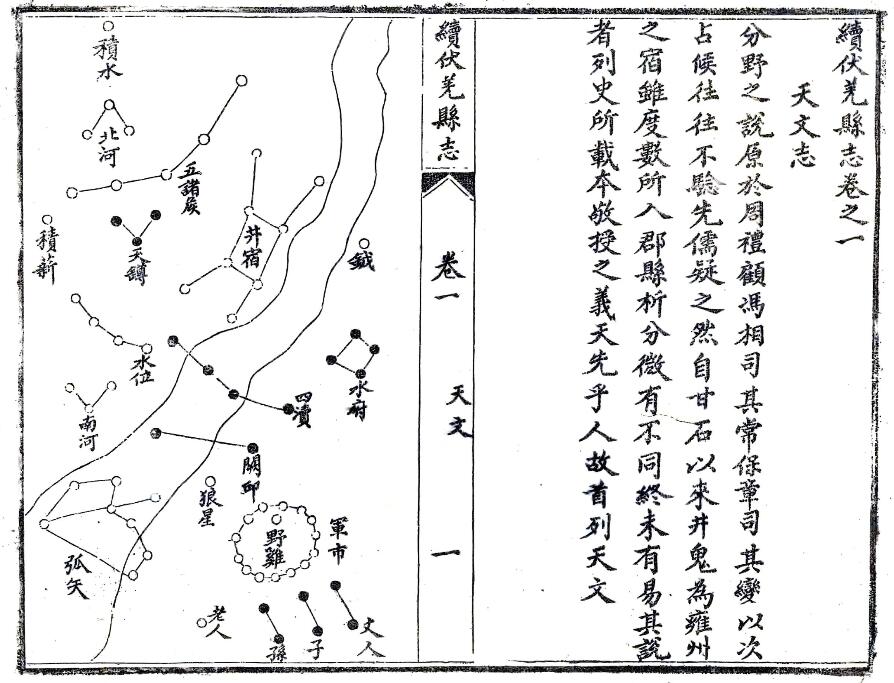 續伏羌縣志卷之一
天文志
分野之說原於周禮顧馮相司其常保章司其變以次
占候往往不驗先儒疑之然自甘石以來井鬼為雍州
之宿雖度數所入郡縣析分微有不同終未有易其說
者列史所載夲敬授之義天先乎人故首列天文
續伏羌縣志
卷一
天文
一
積水
北河
五諸侯
積薪
天罇
井宿
鉞
水位
水府
南河
四瀆
闕邱
狼星
弧矢
軍市
野雞
老人
孫
子
丈人